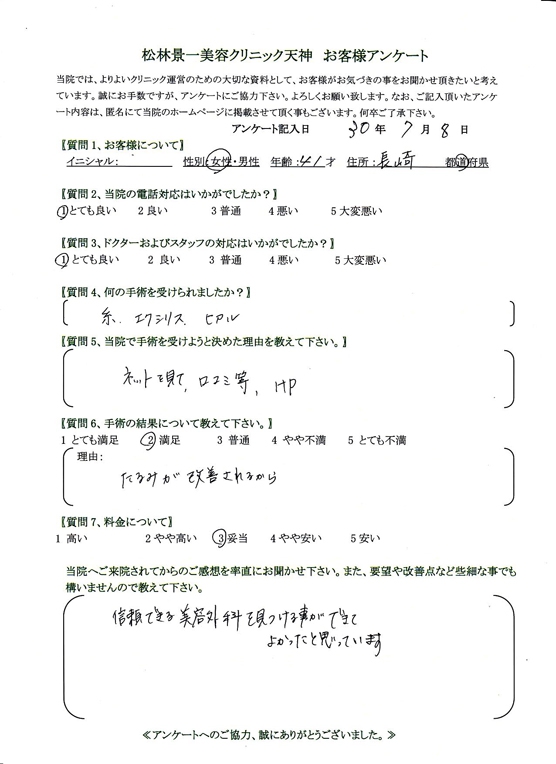 松林景一美容クリニック天神　お客様アンケート
当院では、よりよいクリニック運営のための大切な資料として、お客様がお気づきの事をお聞かせ頂きたいと考え
ています。誠にお手数ですが、アンケートにご協力下さい。よろしくお願い致します。なお、ご記入頂いたアンケ
ート内容は、匿名にて当院のホームページに掲載させて頂く事もございます。何卒ご了承下さい。
アンケート記入日　30年 7月 8日
〖質問1、お客様について〗
イニシャル：　性別：女性・男性　年齢：41才　住所：長崎　都道府県
〖質問2、当院の電話対応はいかがでしたか？〗
1とても良い　2良い　3普通　4悪い　5大変悪い
〖質問3、ドクターおよびスタッフの対応はいかがでしたか？〗
1とても良い　2 良い　3 普通　4悪い　5大変悪い
〖質問4、何の手術を受けられましたか？〗
糸、エクシリス ヒアル
〖質問5、当院で手術を受けようと決めた理由を教えて下さい。〗
ネットを見て、口コミ等、HP
〖質問6、手術の結果について教えて下さい。〗
1 とても満足　2 満足　3 普通　4 やや不満　5 とても不満
理由：
たるみが改善されるから
〖質問7、料金について〗
1 高い　2 やや高い　3 妥当　4 やや安い　5 安い
当院へご来院されてからのご感想を率直にお聞かせ下さい。また、要望や改善点など些細な事でも
構いませんので教えて下さい。
信頼できる美容外科を見つける事ができて
よかったと思っています
≪アンケートへのご協力、誠にありがとうございました。≫